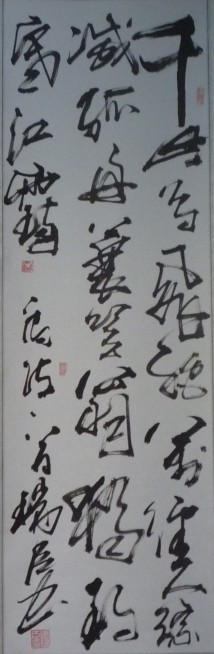 千山鳥飛絕萬徑人踪
滅孤舟蓑笠翁獨釣
寒江雪 唐詩一首